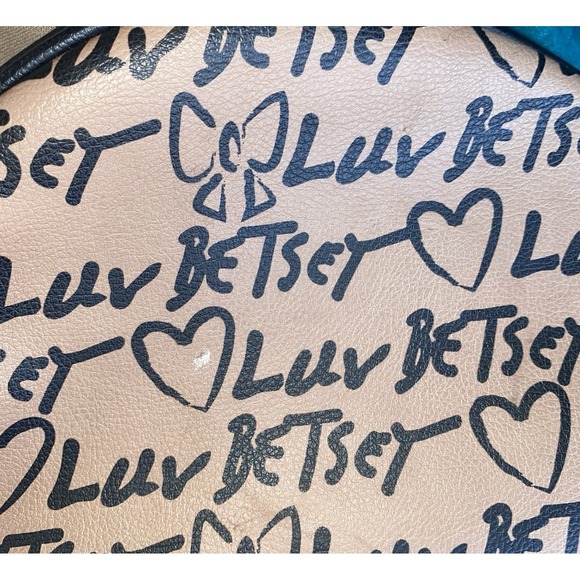 Luv BETSEY
BETSEY Luv BETSEY
Luv BETSEY Luv
BETSEY Luv BETSEY
Luv BETSEY
Luv BETSEY